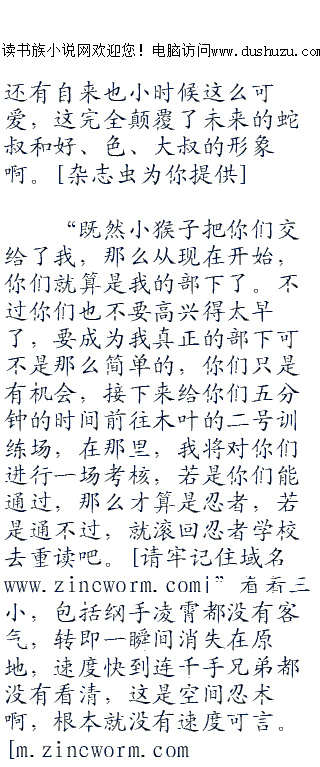 读书族小说网欢迎您！电脑访问www.dushuzu.com
还有自来也小时候这么可
爱，这完全颠覆了未来的蛇
叔和好、色、大叔的形象
啊。[杂志虫为你提供]
“既然小猴子把你们交
给了我，那么从现在开始，
你们就算是我的部下了。不
过你们也不要高兴得太早
了，要成为我真正的部下可
不是那么简单的，你们只是
有机会，接下来给你们五分
钟的时间前往木叶的二号训
练场，在那里，我将对你们
进行一场考核，若是你们能
通过，那么才算是忍者，若
是通不过，就滚回忍者学校
去重读吧。[请牢记住域名
www.zincworm.com|”看着三
小，包括纲手凌霄都没有客
气，转即一瞬间消失在原
地，速度快到连千手兄弟都
没有看清，这是空间忍术
啊，根本就没有速度可言。
[m.zincworm.com